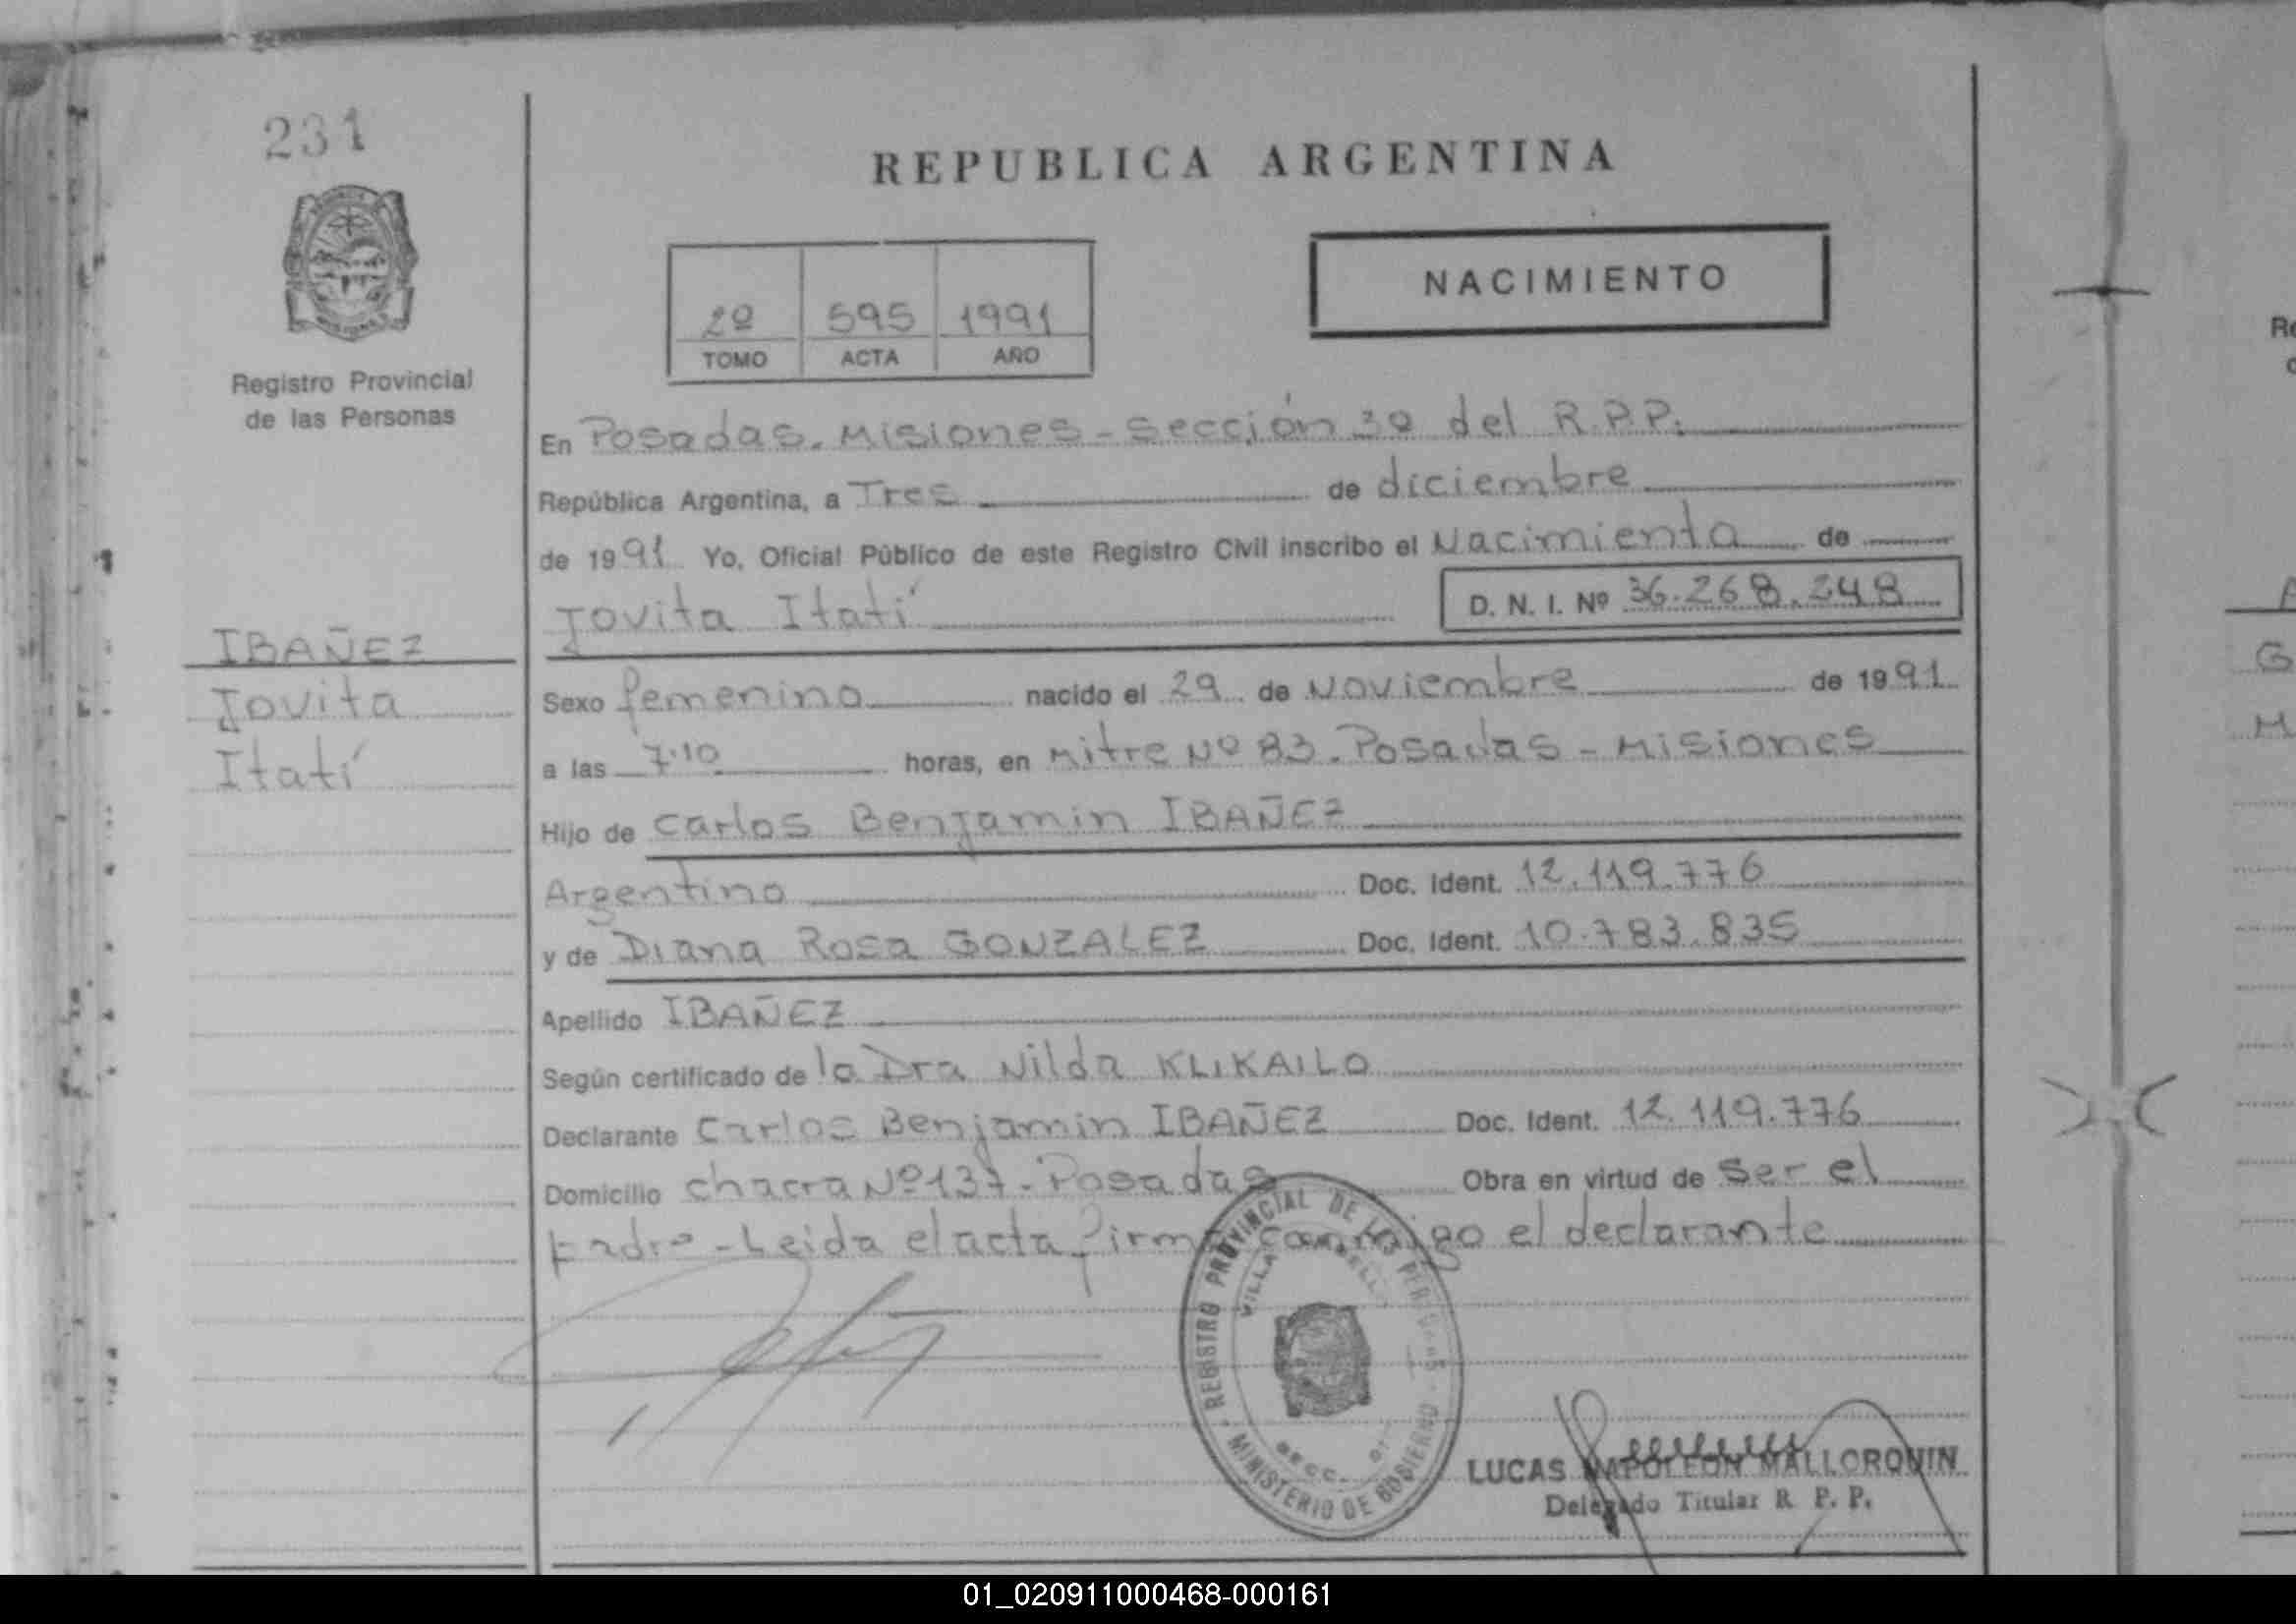 231
REPUBLICA ARGENTINA
NACIMIENTO
2º 595 1991
TOMO ACTA AÑO
Registro Provincial
de las Personas
En Posadas. Misiones - Sección 3º del R.P.P.
República Argentina, a Tres de diciembre
de 1991 Yo, Oficial Público de este Registro Civil inscribo el Nacimiento de
Jovita Itatí D. N. I. Nº 36.268.248
IBAÑEZ
Jovita
Itatí
Sexo femenino nacido el 29 de Noviembre de 1991
a las 7:10 horas, en Mitre Nº 83. Posadas - Misiones
Hijo de Carlos Benjamin IBAÑEZ
Argentino Doc. Ident. 12.119.776
y de Diana Rosa GONZALEZ Doc. Ident. 10.783.835
Apellido IBAÑEZ
Según certificado de la Dra Nilda KLIKAILO
Declarante Carlos Benjamin IBAÑEZ Doc. Ident. 12.119.776
Domicilio chacra Nº 137 - Posadas Obra en virtud de Ser el
padre - Leida el acta firma conmigo el declarante
REGISTRO PROVINCIAL DE LAS PERSONAS
VILLA
SECC.
MINISTERIO DE GOBIERNO
LUCAS NAPOLEON MALLORQUIN
Delegado Titular R. P. P.
01_020911000468-000161